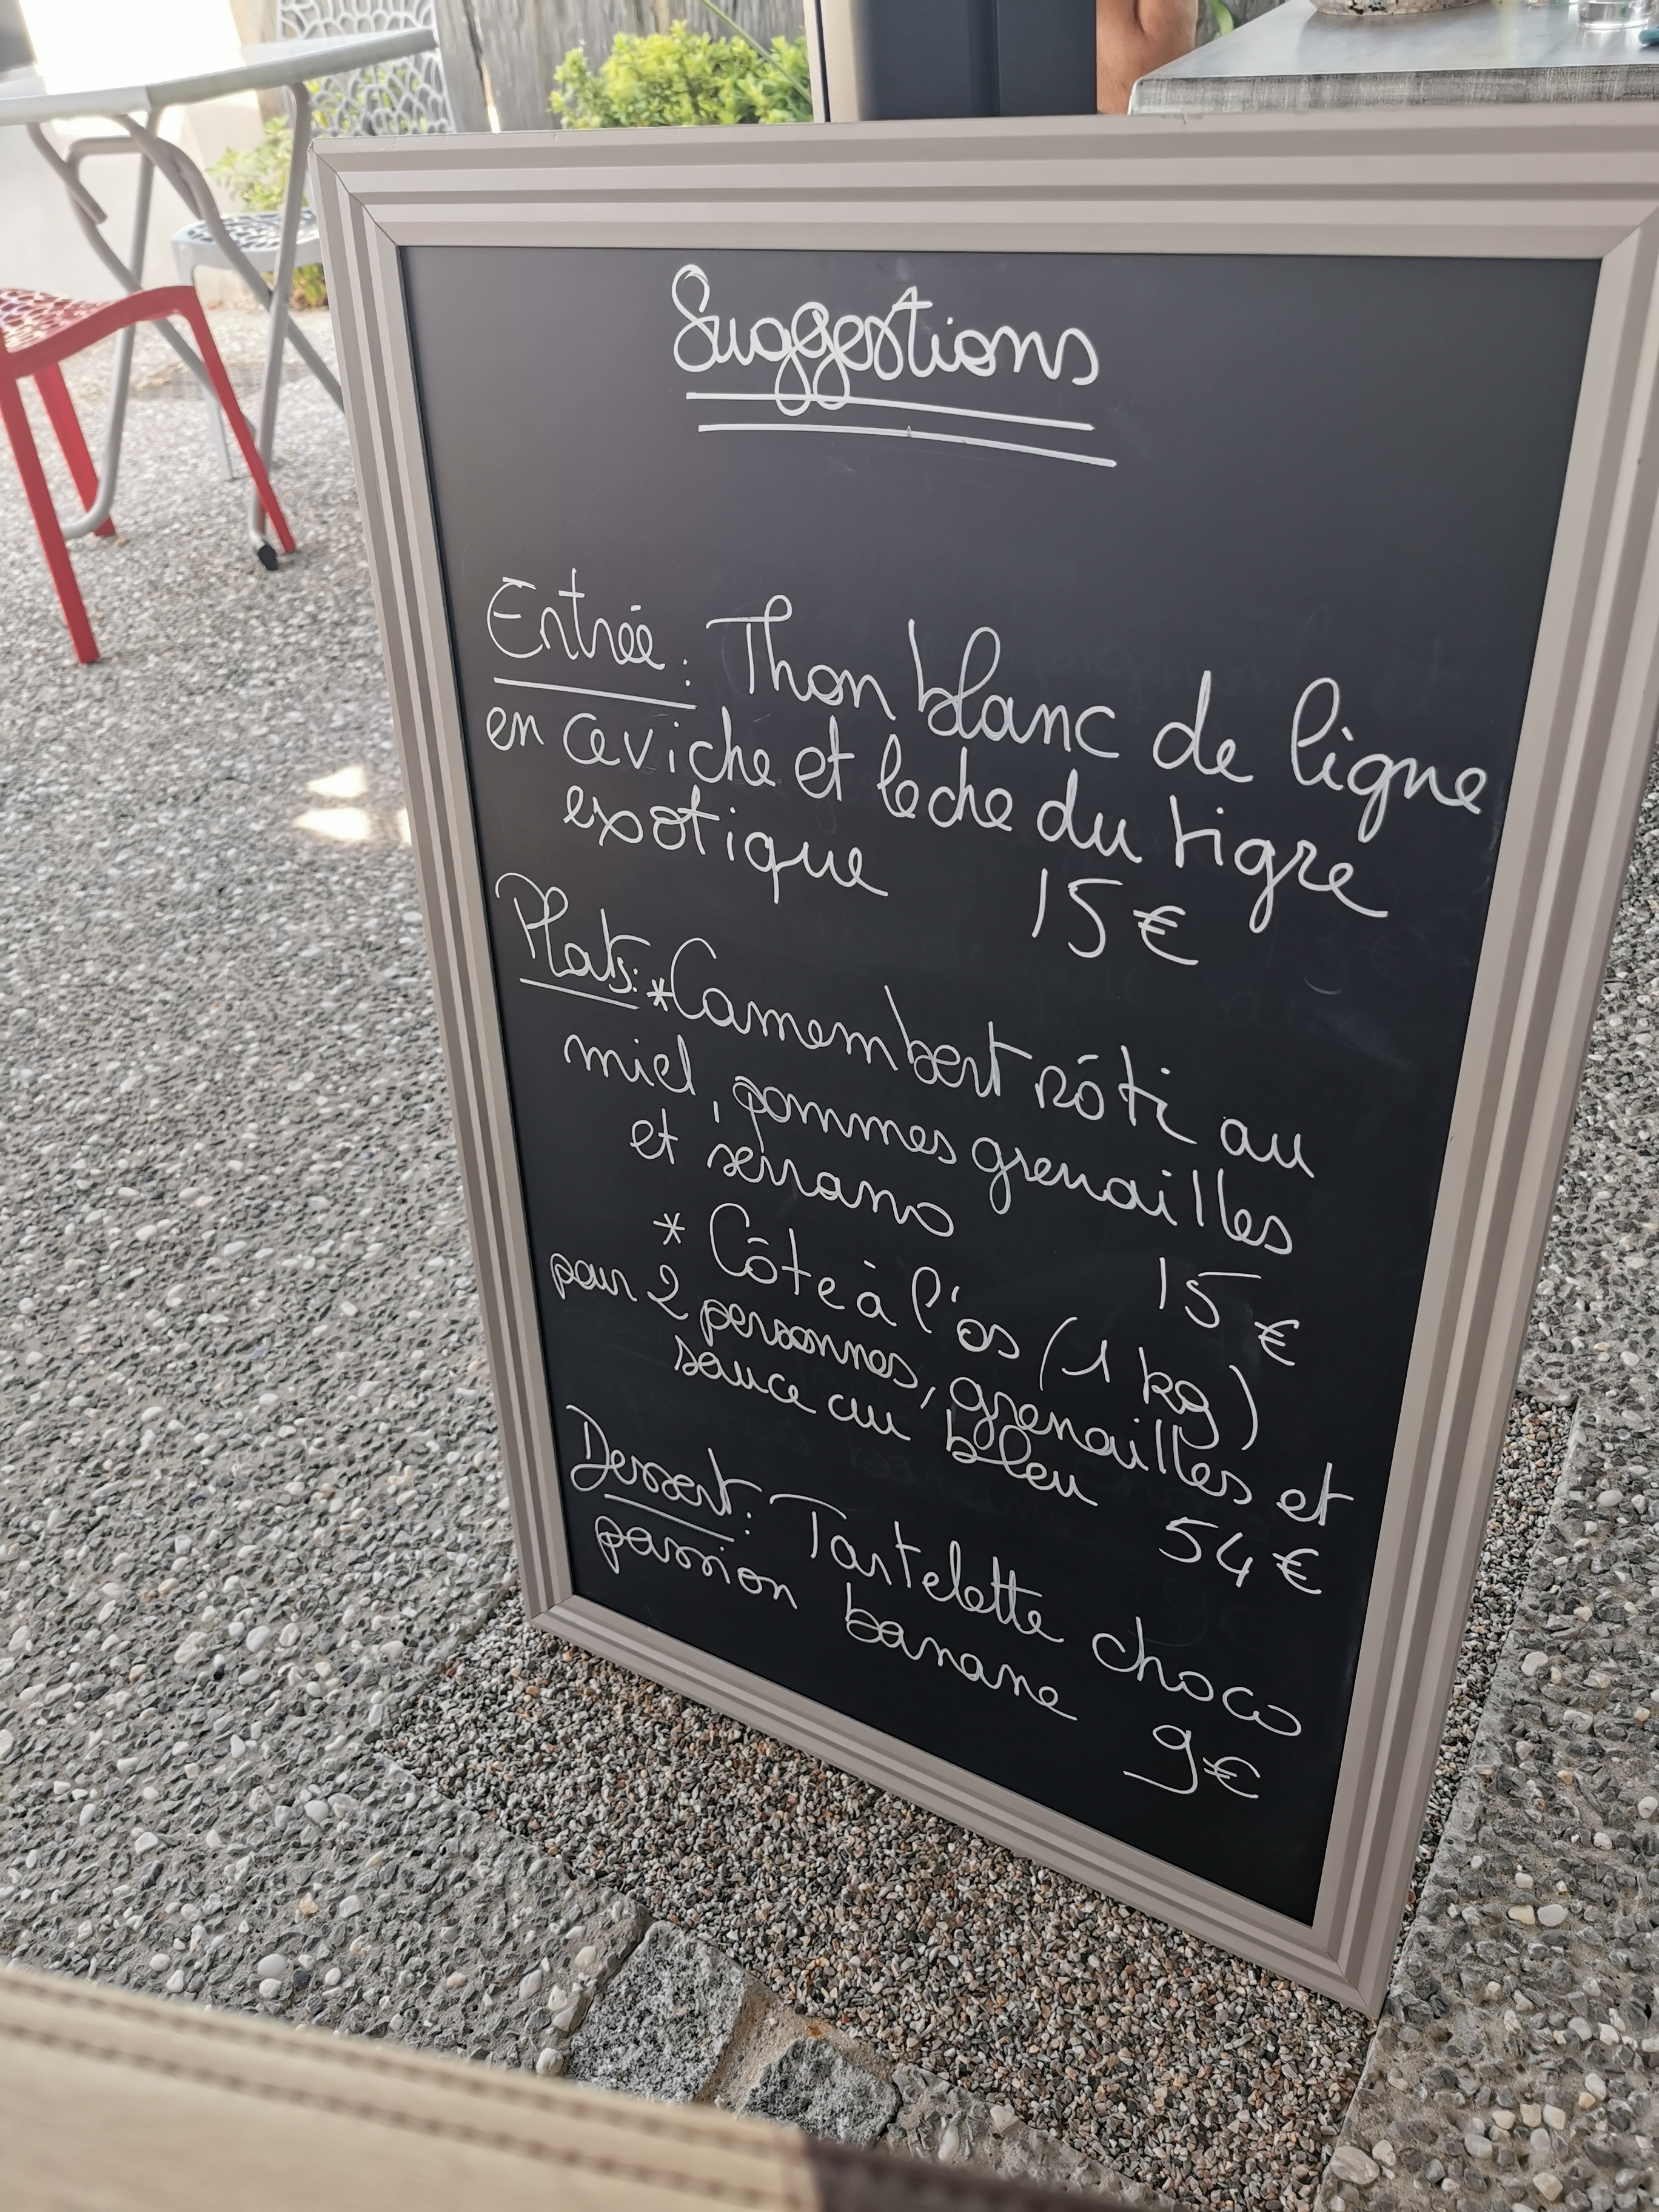 Suggestions
Entrée : Thon blanc de ligne
en ceviche et leche du tigre
exotique 15€
Plats: *Camembert rôti au
miel, pommes grenailles
et serrano 15€
* Côte à l'os (1 kg)
pour 2 personnes, grenailles et
sauce au bleu 54€
Dessert : Tartelette choco
passion banane 9€